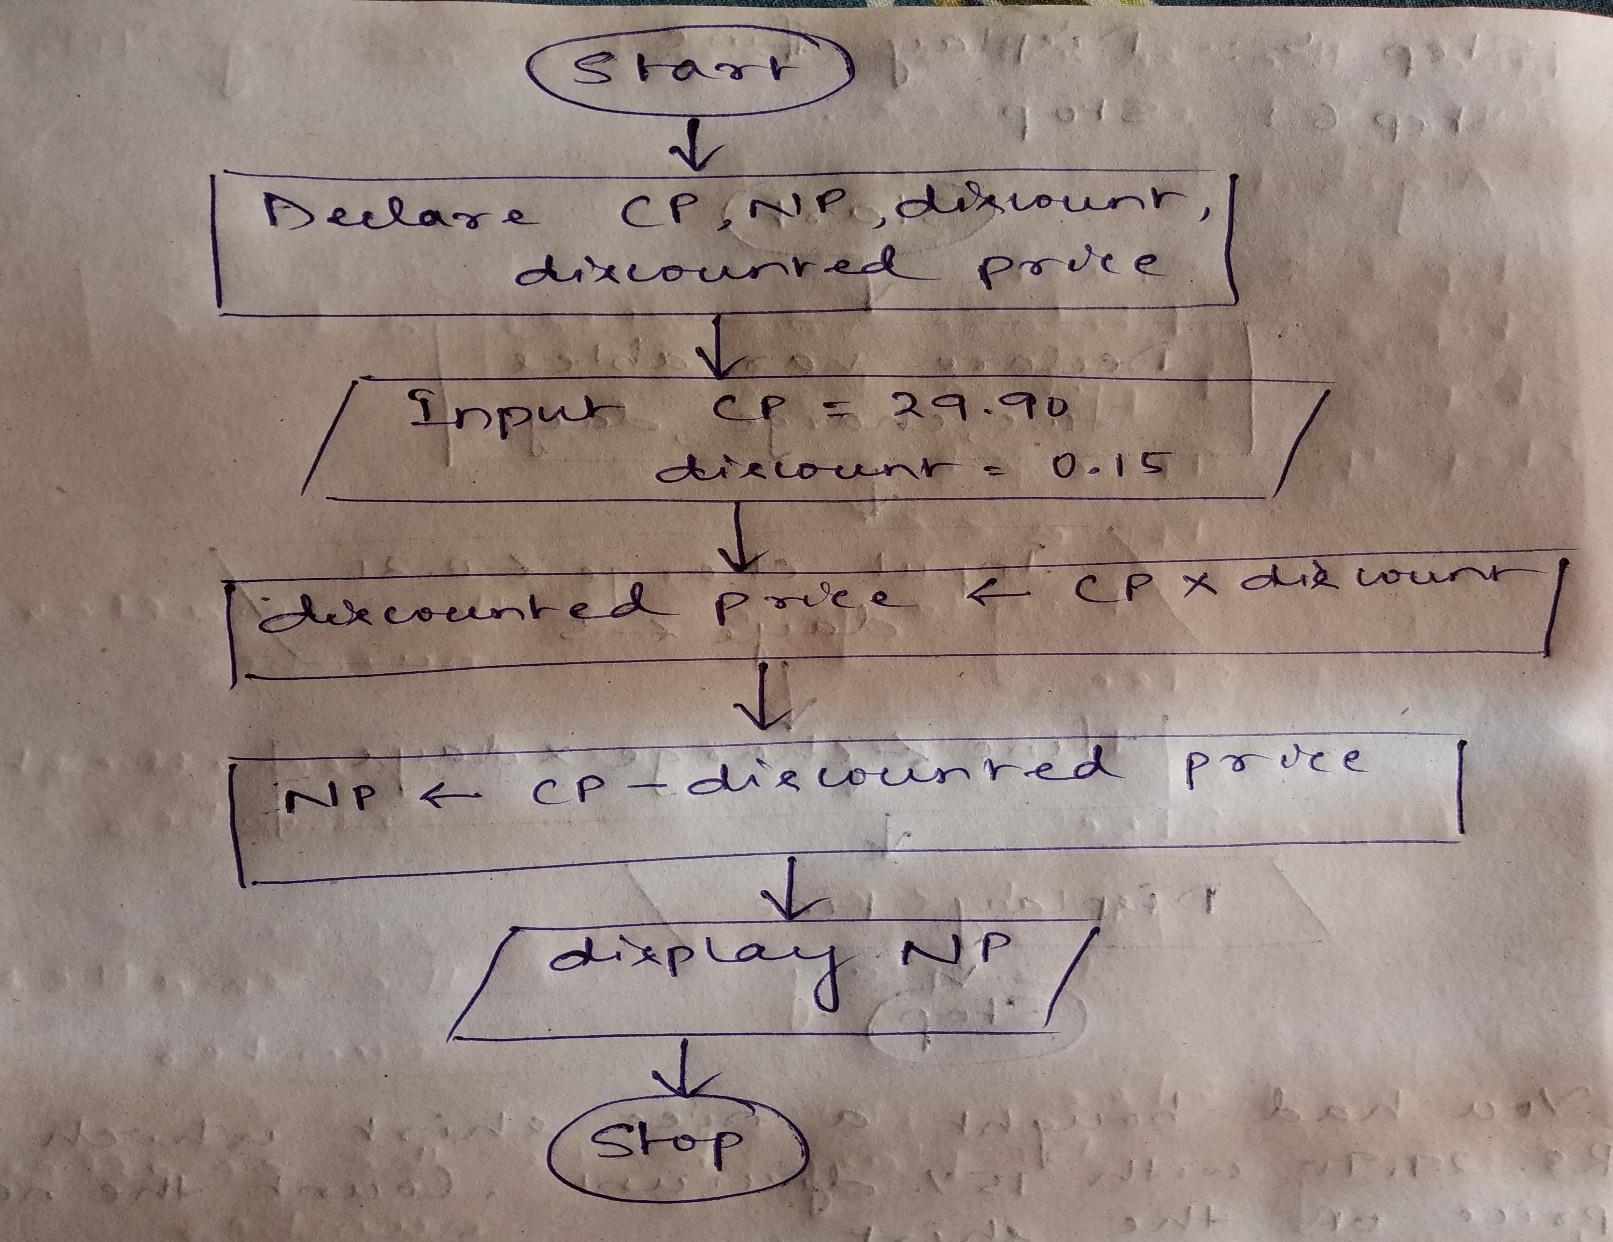 Start
Declare CP, NP, discount,
discounted price
Input CP = 29.90
discount = 0.15
discounted price ← CP x discount
NP ← CP - discounted price
display NP
Stop